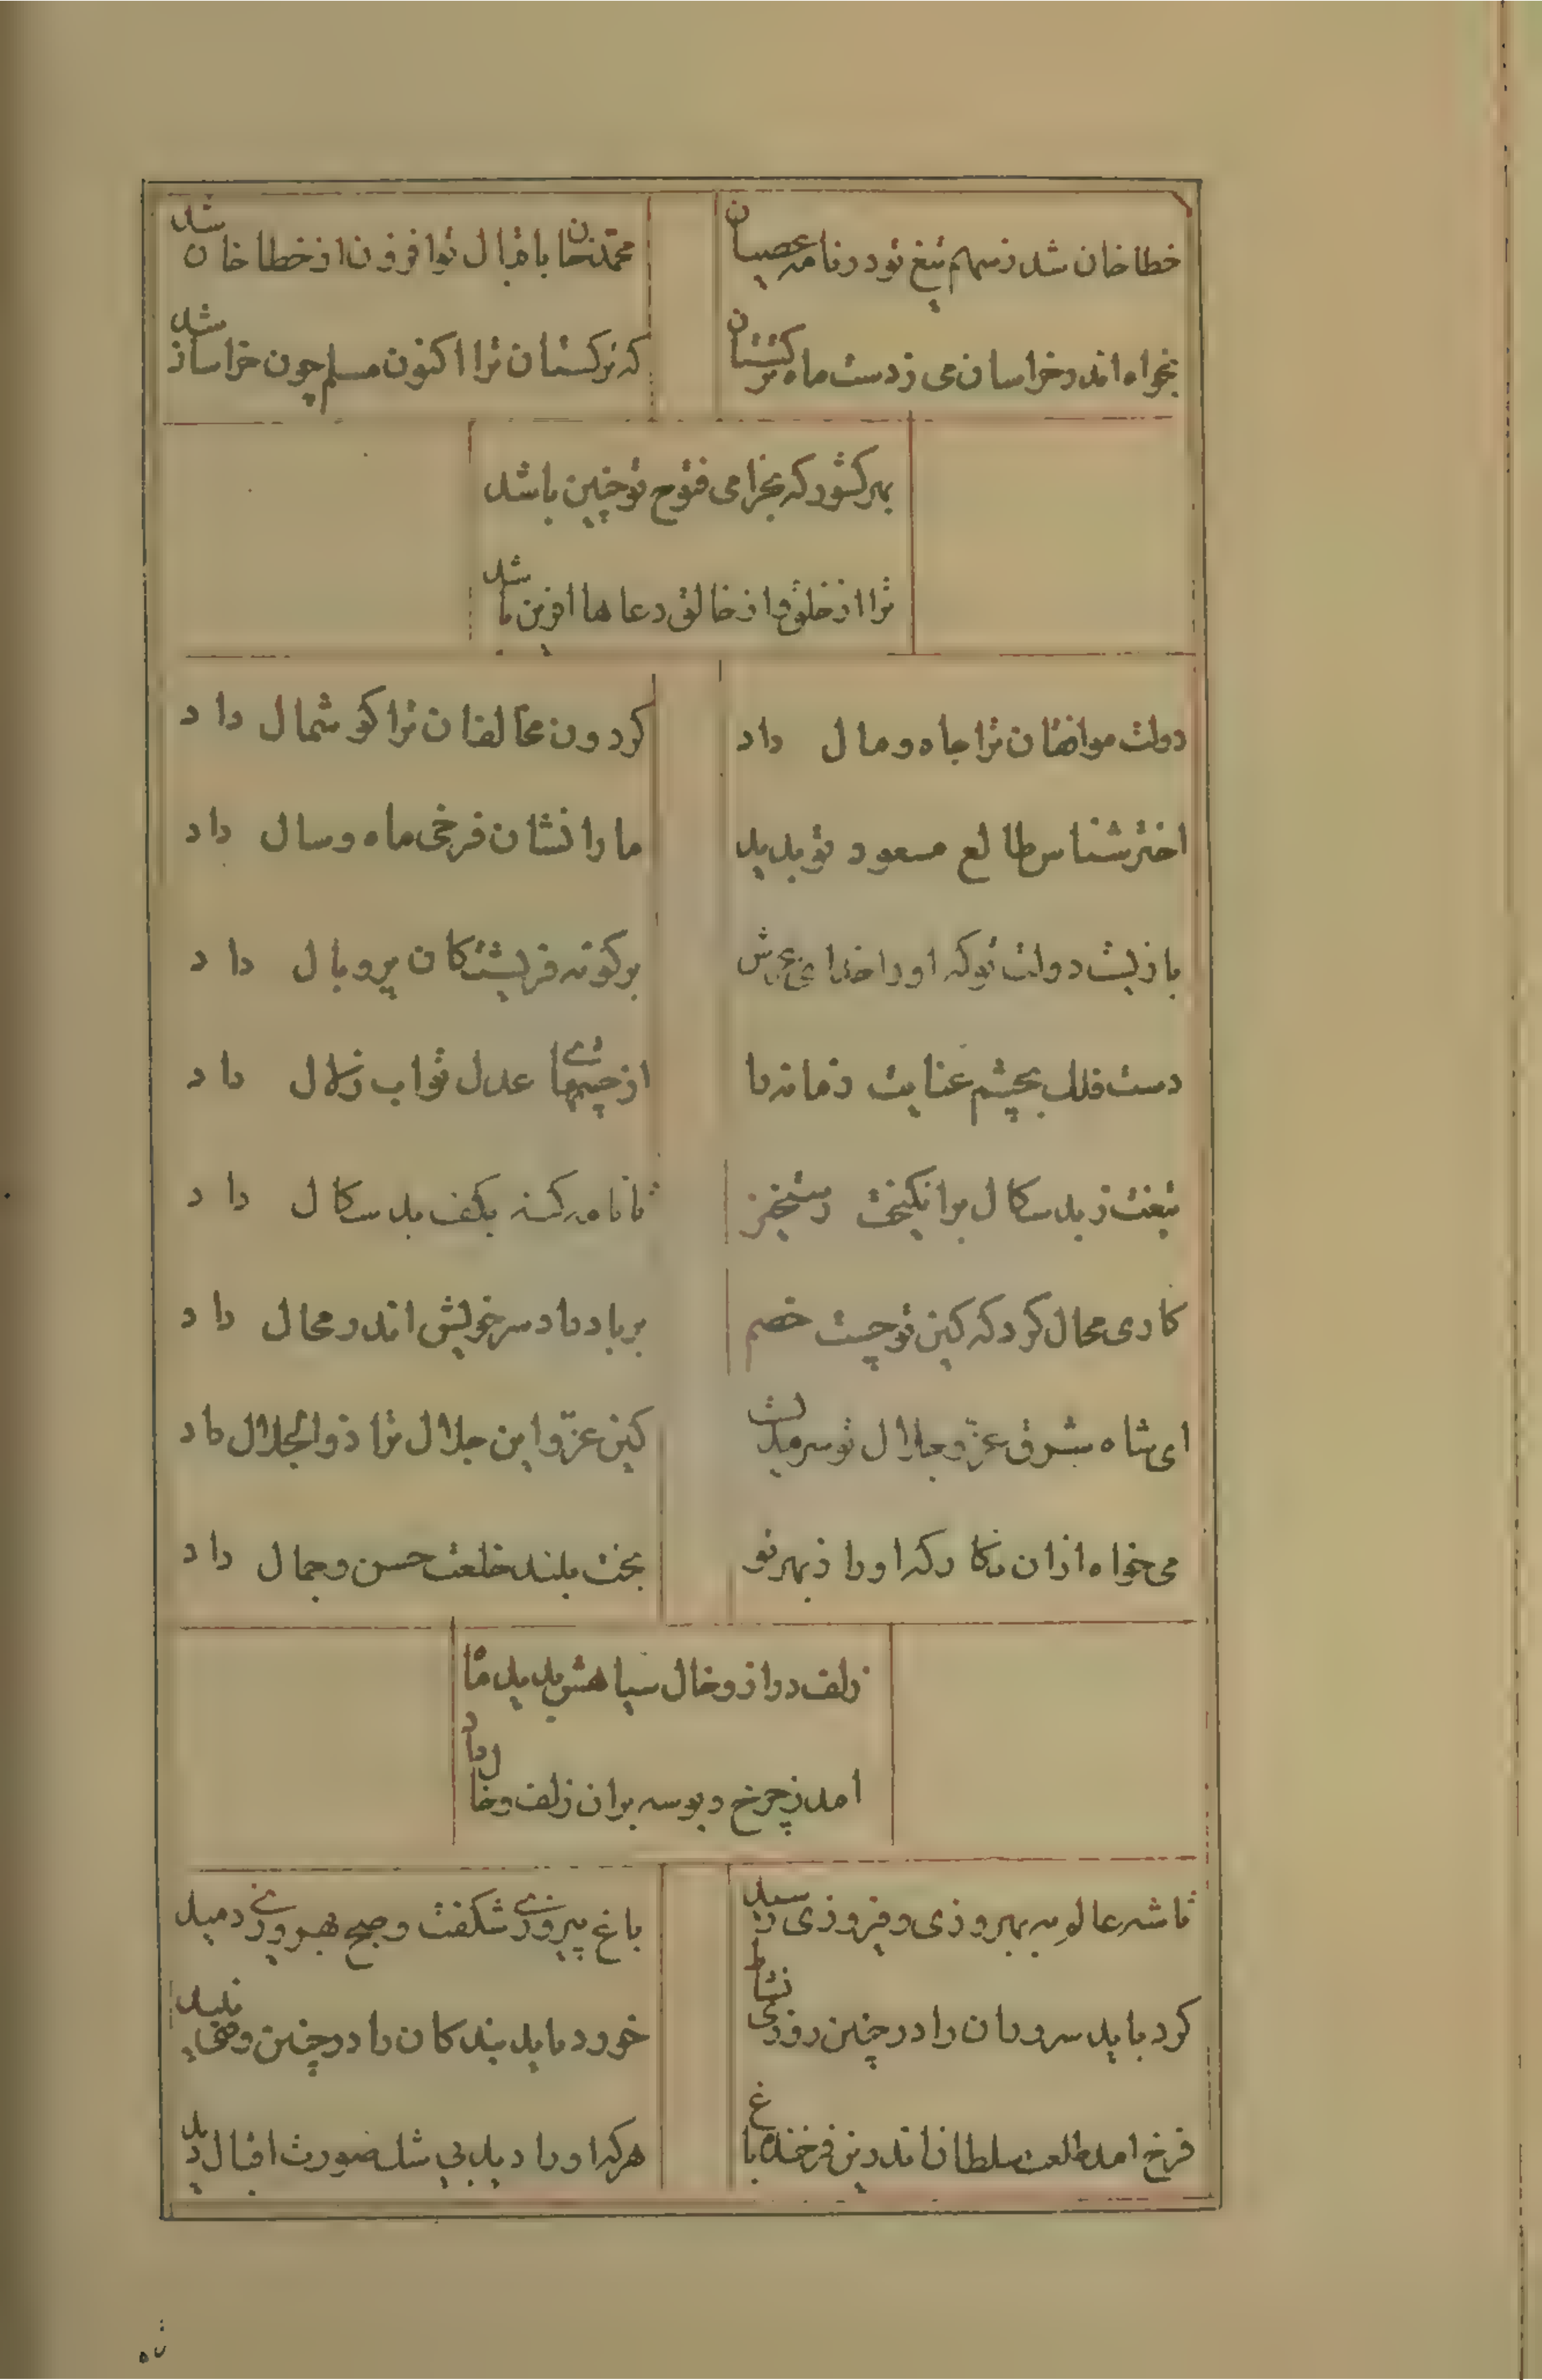 خطا خان شد زسهم تیغ تو در نامه عصیان
محمّد خان باقبال تو افزون از خطا خان شد
بخواه اندر خراسان می ز دست ماه ترکستان
که ترکستان ترا اکنون مسلم چون خراسان شد
بهر کشور که بخرامی فتوح تو چنین باشد
ترا از خلق و از خالق دعاها افرین باشد
دولت موافقان ترا جاه و مال داد
کردون مخالفان ترا کوشمال داد
اختر شناس طالع مسعود تو بدید
ما را نشان فرخی ماه و سال داد
بازیست دولت تو که او را خدای عرش
بر کونه فریشتکان پر و بال داد
دست فلک بچشم عنایت زمانه را
از چشمهای عدل تو اب زلال داد
تیغت ز بدسکال برانکیخت رستخیز
تا نامه کنه بکف بدسکال داد
کاری محال کرد که کین تو جست خصم
بر باد داد سر خویش اندر محال داد
ای شاه شرق عزّ و جلال تو سرمدیست
کین عزّ و این جلال ترا ذوالجلال داد
می خواه ازان نکار که او را ز بهر تو
بخت بلند خلعت حسن و جمال داد
زلف دراز و خال سیاهش بدید ماه
امد ز چرخ و بوسه بران زلف و خال داد
تا شه عالم به بهروزی و فیروزی رسید
باغ پیروزی شکفت و صبح بهروزی دمید
کرد باید سروران را در چنین روزی نشاط
خورد باید بندکان را در چنین وقتی نبید
فرخ امد طلعت سلطان اندرین فرخنده باغ
هر که او را دید بی شک صورت اقبال دید